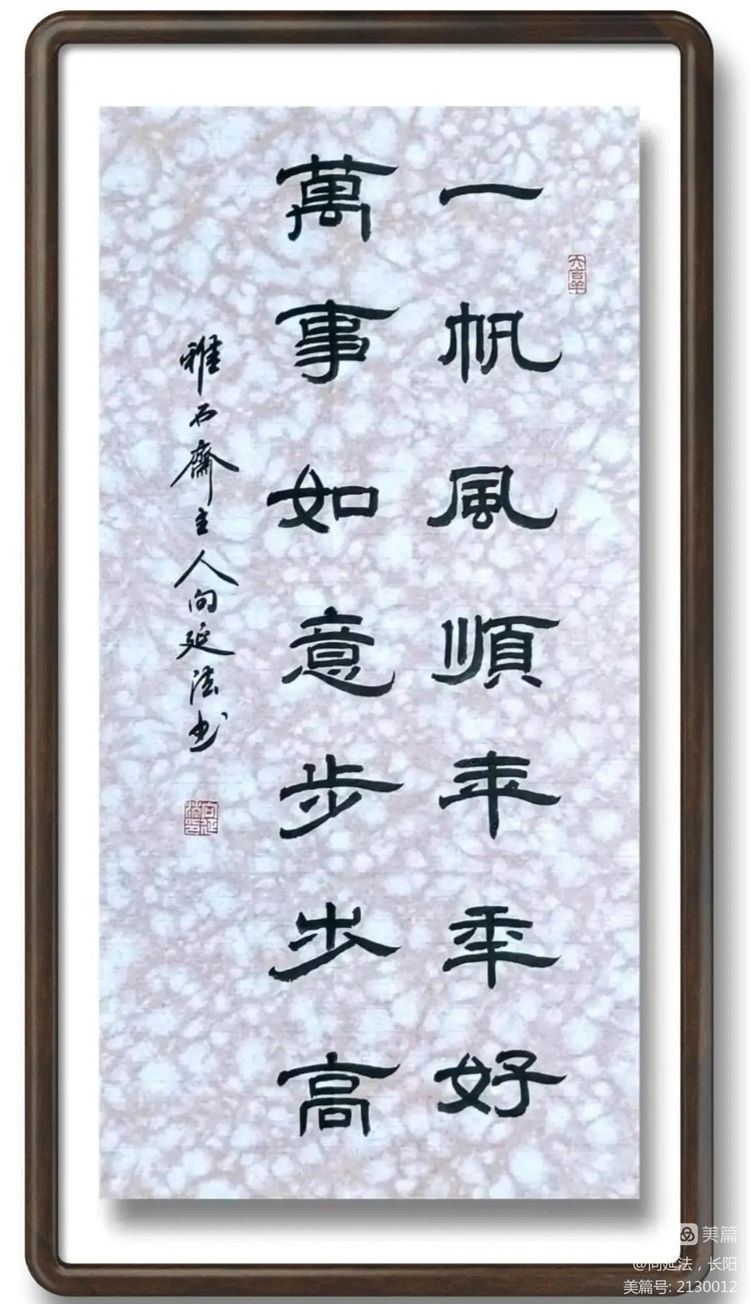 一帆風順年年好
萬事如意步步高
雅石齋主人向延法书
美篇
@向延法，长阳
美篇号: 2130012